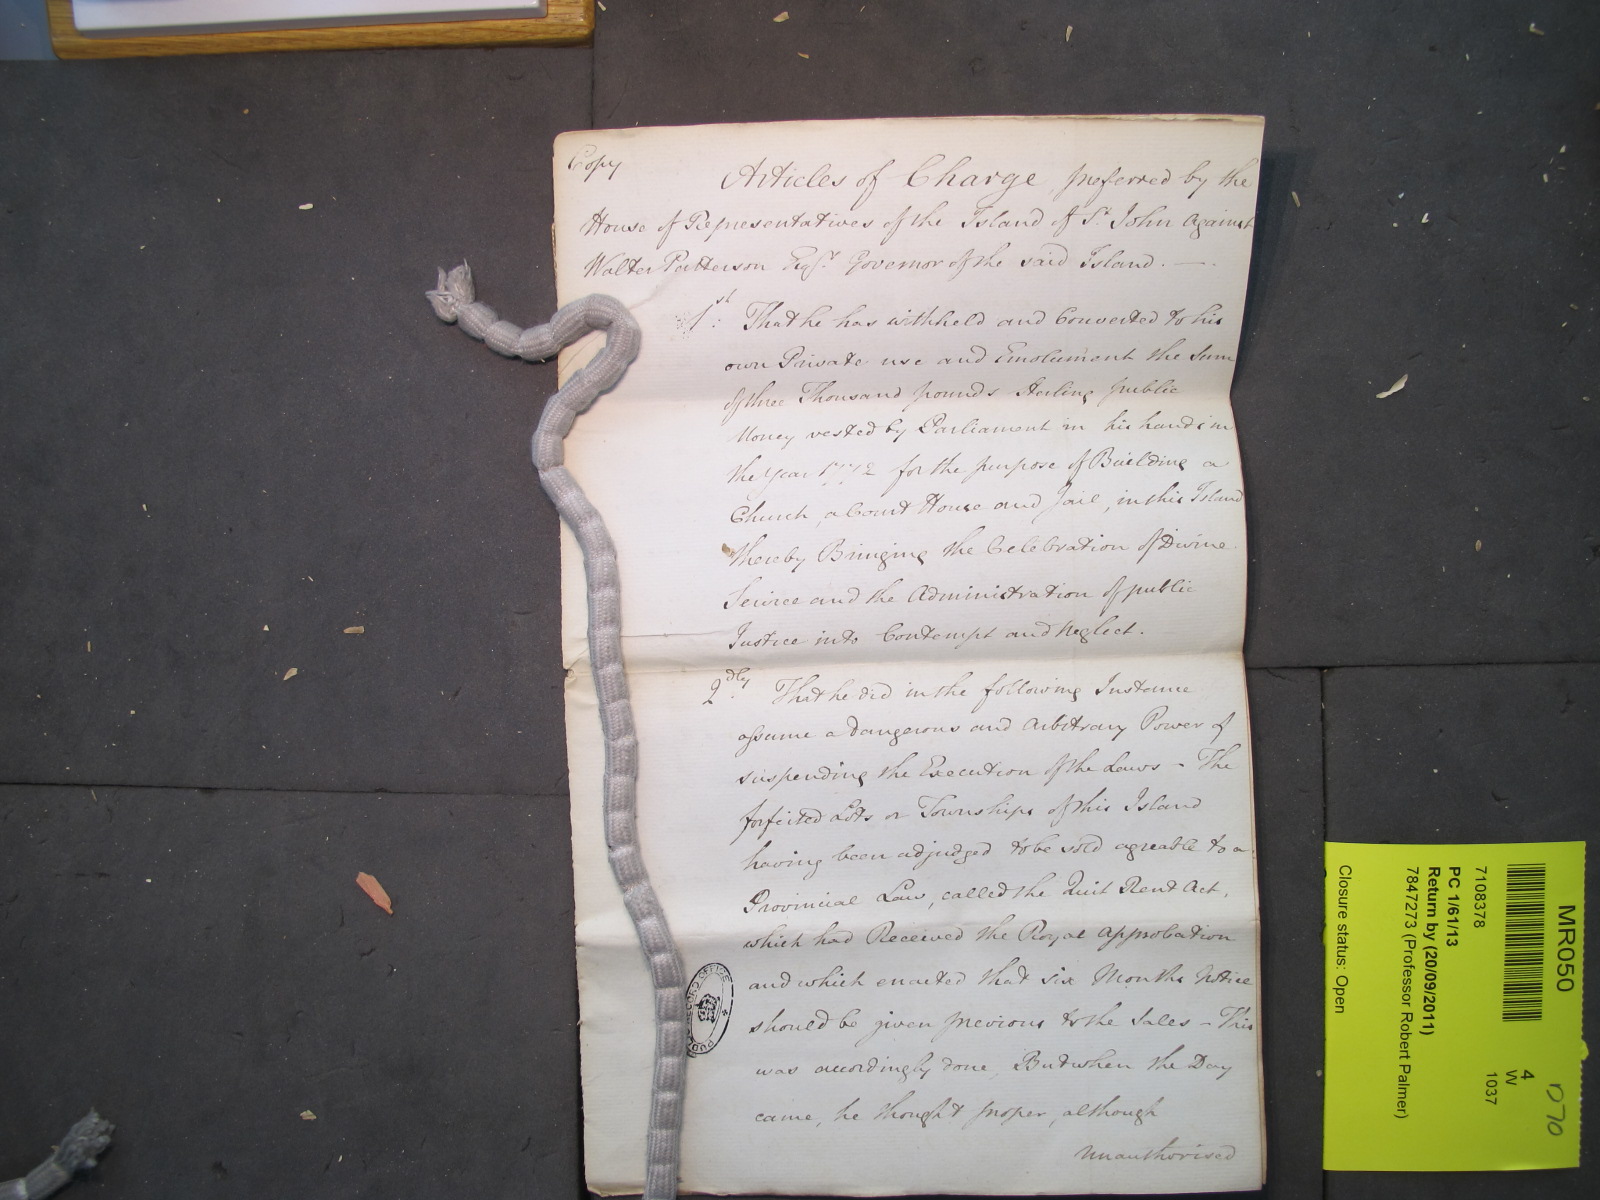 Copy
Articles of Charge preferred by the
House of Representatives of the Island of St. John against
Walter Patterson Esqr. Governor of the said Island. —.
1st. That he has withheld and Converted to his
own Private use and Emolument the Sum
of three Thousand pounds Sterling public
Money vested by Parliament in his hands in
the Year 1772 for the purpose of Building a
Church, a Court House and Jail, in this Island
thereby Bringing the Celebration of Divine
Service and the Administration of public
Justice into Contempt and Neglect.
2dly. That he did in the following Instance
assume a Dangerous and Arbitrary Power of
suspending the Execution of the Laws – The
forfeited Lots or Townships of this Island
having been adjudged to be sold agreable to a
Provincial Law, called the Quit Rent Act,
which had Received the Royal approbation
and which enacted that six Months Notice
should be given previous to the Sales – This
was accordingly done, But when the Day
came, he thought proper, although
unauthorised
PUBLIC RECORD OFFICE
MR050
D70
4
W
1037
7108378
PC 1/61/13
Return by (20/09/2011)
7847273 (Professor Robert Palmer)
Closure status: Open